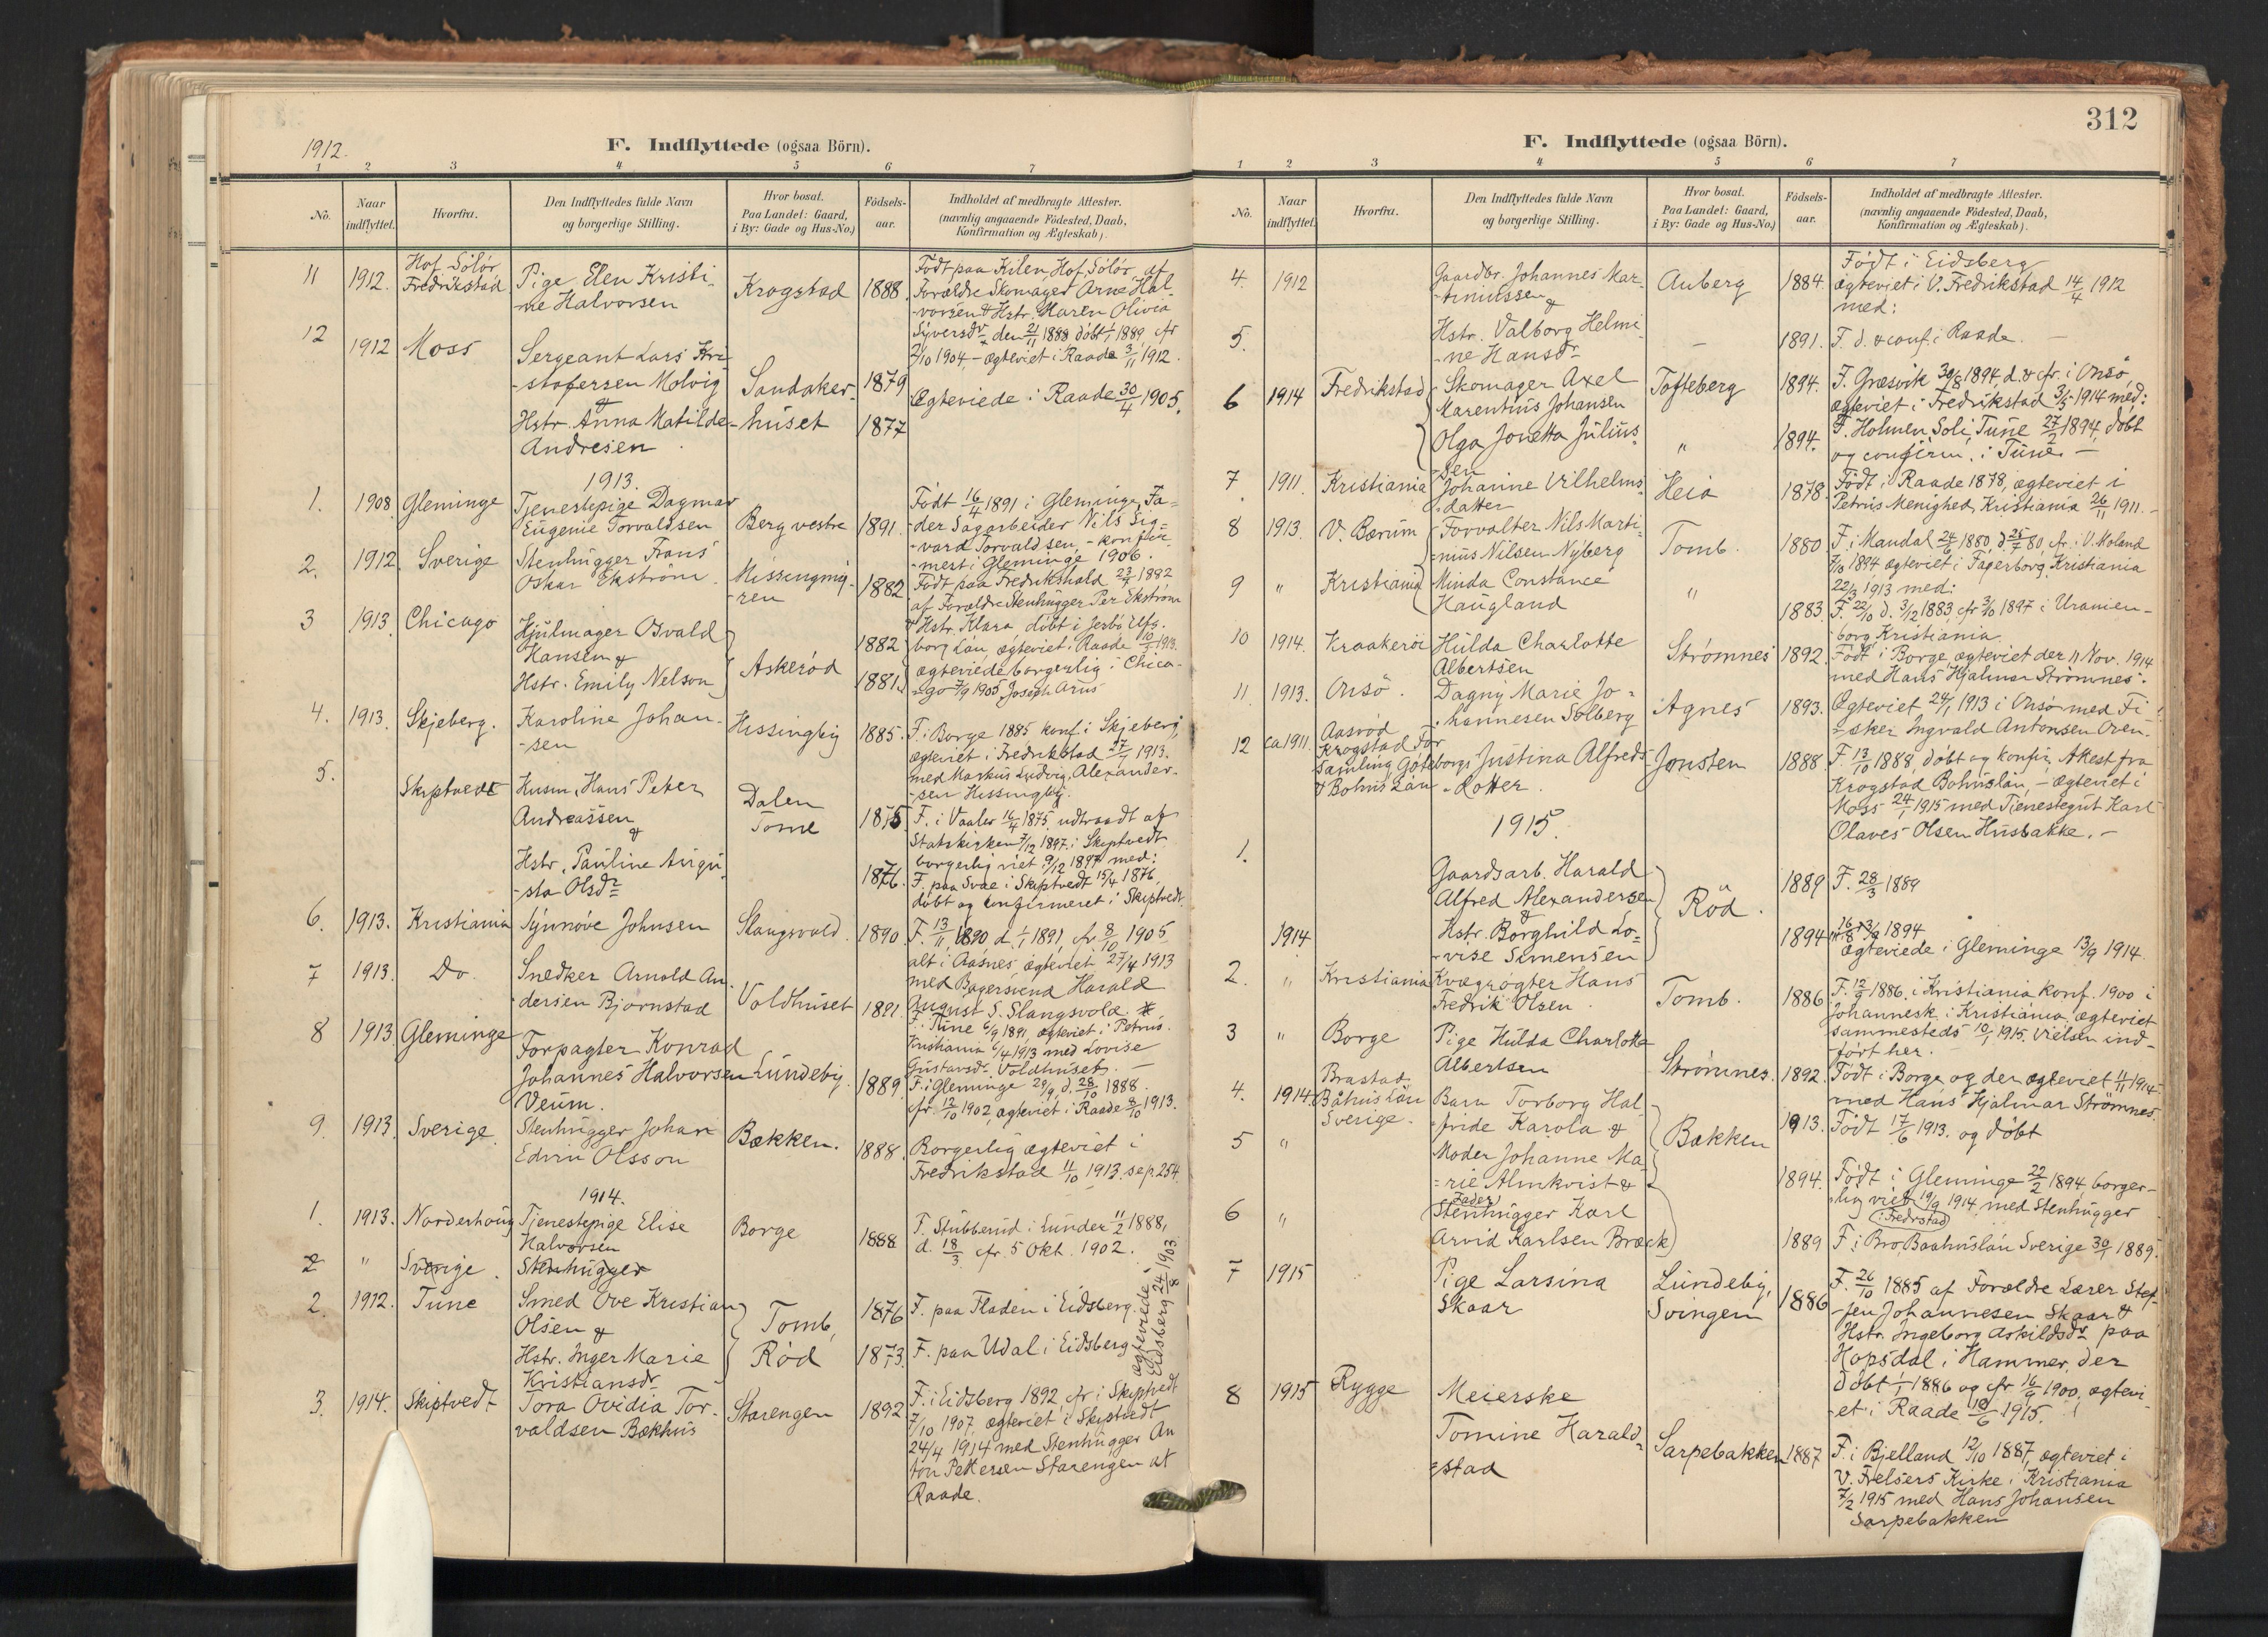 1912.
F. Indflyttede (ogsaa Börn).
1 2 3 4 5 6 7
No. Naar indflyttet. Hvorfra. Den Indflyttedes fulde Navn og borgerlige Stilling. Hvor bosat. Paa Landet: Gaard, i By: Gade og Hus-No.) Födsels-aar. Indholdet af medbragte Attester. (navnlig angaaende Födested, Daab, Konfirmation og Ægteskab).
11 1912. Hof Sölör Fredrikstad
Pige Elen Kristi-
ne Halvorsen
Krogstad 1888.
Födt paa Kilen, Hof, Sölör, af
Forældre Skomager Arne Hal-
vorsen & Hstr. Maren Olivia
Syversdr den 21/11 1888 döbt 1/1 1889, cfr
2/10 1904, - ægteviet i Raade 3/11 1912.
12 1912 Moss
Sergeant Lars Kri-
stofersen Molvig
&
Hstr. Anna Matilde
Andresen
Sandaker-
huset
1879
1877
Ægteviede i Raade 30/4 1905.
1913.
1. 1908 Gleminge
Tjenestepige Dagmar
Eugenie Torvaldsen
Berg vestre 1891.
Födt 16/4 1891 i Gleminge, Fa-
der Sagarbeider Nils Sig-
vard Torvaldsen, - konfir-
mert i Gleminge 1906.
2. 1912 Sverige
Stenhugger Frans
Oskar Ekström
1882
Födt paa Fredrikshald 23/4 1882
af Forældre Stenhugger Per Ekström
& Hstr. Klara döbt i
ægteviet i Raade 10/ 1913.
3 1913 Chicago
Hjulmager Osvald
Hansen &
Hstr. Emily Nelson
Askeröd
1882
1881
ægteviede borgerlig i Chica-
go 7/9 1905 Joseph
4. 1913. Skjeberg.
Karoline Johan-
sen
Hissingby 1885.
F. i Borge 1885 konf. i Skjeberg,
ægteviet i Fredrikstad 27/ 1913.
med Markus Ludvig Alexander-
sen Hissingby.
5. Skiptvedt
Husm. Hans Peter
Andreassen
&
Hstr. Pauline Augu-
sta Olsdr
Dalen
Tome
1875.
1876.
F. i Vaaler 16/4 1875. udtraadt af
Statskirken 7/12 1897 i Skiptvedt
borgerlig viet 9/12 1897 med:
F. paa Svae i Skiptvedt 15/4 1876,
döbt og konfirmeret i Skiptvedt.
6. 1913. Kristiania
Synnöve Johnsen
Slangsvold. 1890
F. 13/11 1890 d. 1/1 1891, cfr. 8/10 1905
alt i Aasnes, ægteviet 27/4 1913
med Bagersvend Harald
August S. Slangsvold.
7 1913. Do.
Snedker Arnold An-
dersen Bjornstad
Voldhuset 1891.
F. i Tune 6/9 1891, ægteviet i Petrus.
Kristiania 6/4 1913 med Lovise
Gustavsdr Voldhuset. —
8 1913 Gleminge
Forpagter Konrad
Johannes Halvorsen
Veum.
Lundeby. 1889.
F. i Gleminge 29/9, d. 28/10 1888.
cfr. 12/10 1902, ægteviet i Raade 8/10 1913.
9. 1913. Sverige.
Stenhugger Johan
Edvin Olsson
Bækken. 1888.
Borgerlig ægteviet i
Fredrikstad 11/10 1913. se p. 254.
1914.
1. 1913. Norderhoug
Tjenestepige Elise
Halvorsen
Borge 1888
F. Stubberud i Lunder 11/2 1888,
d. 18/3 cfr. 5 Okt. 1902.
2 " Sverige. Stenhugger
2. 1912. Tune
Smed Ove Kristian
Olsen &
Hstr. Inger Marie
Kristiansdr
Tomb,
Röd
1876
1873.
F. paa Fladen i Eidsberg.
F. paa Udal i Eidsberg
ægteviede i
Eidsberg 24/8 1903
3. 1914. Skiptvedt
Tora Ovidia Tor-
valdsen Bækhus
Starengen 1892
F. i Eidsberg 1892, cfr. i Skiptvedt
7/10 1907, ægteviet i Skiptvedt
24/4 1914 med Stenhugger An
ton Pettersen Starengen at
Raade.
312
F. Indflyttede (ogsaa Börn).
1 2 3 4 5 6 7
No. Naar indflyttet. Hvorfra. Den Indflyttedes fulde Navn og borgerlige Stilling. Hvor bosat. Paa Landet: Gaard, i By: Gade og Hus-No.) Födsels-aar. Indholdet af medbragte Attester. (navnlig angaaende Födested, Daab, Konfirmation og Ægteskab).
4. 1912
Gaardbr. Johannes Mar-
tiniussen
&
Auberg 1884.
Födt i Eidsberg
ægteviet i V. Fredrikstad 14/4 1912
med:
5.
Hstr. Valborg Helmi-
ne Hansdr
— 1891.
F. d. & conf. i Raade. —
6 1914 Fredrikstad
Skomager Axel
Marentius Johansen
Olga Jonetta Julius-
sen
Tofteberg 1894.
" 1894.
F. Græsvik 30/8 1894, d. & cfr. i Onsö,
ægteviet i Fredrikstad 3/5 1914 med:
F. Holmen, Soli, Tune 27/2 1894, döbt
og confirm. i Tune. —
7 1911. Kristiania
Johanne Vilhelms-
datter
Heia 1878.
Födt i Raade 1878, ægteviet i
Petrus Menighed, Kristiania 26/11 1911. —
8 1913. V. Bærum
Forvalter Nils Marti-
nius Nilsen Nyberg
Tomb. 1880
F. i Mandal 24/6 1880, d. 25/7 80, cfr. i V. Moland
7/10 1894 ægteviet i Fagerborg, Kristiania
22/3 1913 med:
9 " Kristiania
Minda Constance
Haugland
" 1883.
F. 22/10 d. 3/12 1883, cfr 3/10 1897 i Uranien-
borg Kristiania.
10 1914. Kraakeröi
Hulda Charlotte
Albertsen
Strømnes 1892.
Födt i Borge, ægteviet der 11 Nov. 1914
med Hans Hjalmar Strømnes.
11 1913. Onsö.
Dagny Marie Jo-
hannesen Solberg
Agnes 1893.
Ægteviet 24/1 1913 i Onsö med Fi-
sker Ingvald Antonsen Oven.
12 ca 1911. Aasröd
Krogstad För
samling Göteborgs
& Bohus Län
Justina Alfreds-
dotter.
Jonsten 1888
F. 13/10 1888, döbt og konfir. Attest fra
Krogstad Bohuslän, - ægteviet i
Moss 24/1 1915 med Tjenestegut Karl
Olaves Olsen Husbakke. -
1915.
1.
Gaardsarb. Harald
Alfred Alexandersen
&
1914
Hstr. Borghild Lo-
vise Simensen
Röd.
1889
1894
F. 28/3 1889
1894
Ægteviede i Gleminge 13/9 1914.
2. " Kristiania
Kvægrögter Hans
Fredrik Olsen.
Tomb. 1886
F. 12/9 1886. i Kristiania konf. 1900 i
Johannesk. i Kristiania, ægteviet
sammesteds 10/1 1915. Vielsen ind-
fört her.
3 " Borge
Pige Hulda Charlotta
Albertsen
Strömnes. 1892.
Födt i Borge og der ægteviet 11/11 1914
med Hans Hjalmar Strömnes.
4. 1914. Brastad
Båhus Län
Sverige.
Barn Torborg Hal-
fride Karola &
Bækken 1913.
Födt 17/6 1913. og döbt
5 "
Moder Johanne Ma-
rie Almkvist &
1894.
Födt i Gleminge 22/2 1894, borger-
lig viet 19/9 1914 med Stenhugger
i Fredrstad
6 "
Fader
Stenhugger Karl
Arvid Karlsen Bræck
1889
F. i Bro, Baahuslän Sverige 30/1 1889.
7 1915
Pige Larsina
Skaar
Lundeby,
Svingen
1886
F. 26/10 1885 af Forældre Lærer Stef-
fen Johannesen Skaar &
Hstr. Ingeborg Askildsdr paa
Hopsdal i Hammer, der
döbt 1/1 1886 og cfr 16/9 1900, ægtevi-
et i Raade 10/6 1915.
8 1915 Rygge
Meierske
Tomine Harald-
stad
Sarpebakken 1887
F. i Bjelland 12/10 1887, ægteviet i
V. Frelsers Kirke i Kristiania
7/2 1915 med Hans Johansen
Sarpebakken